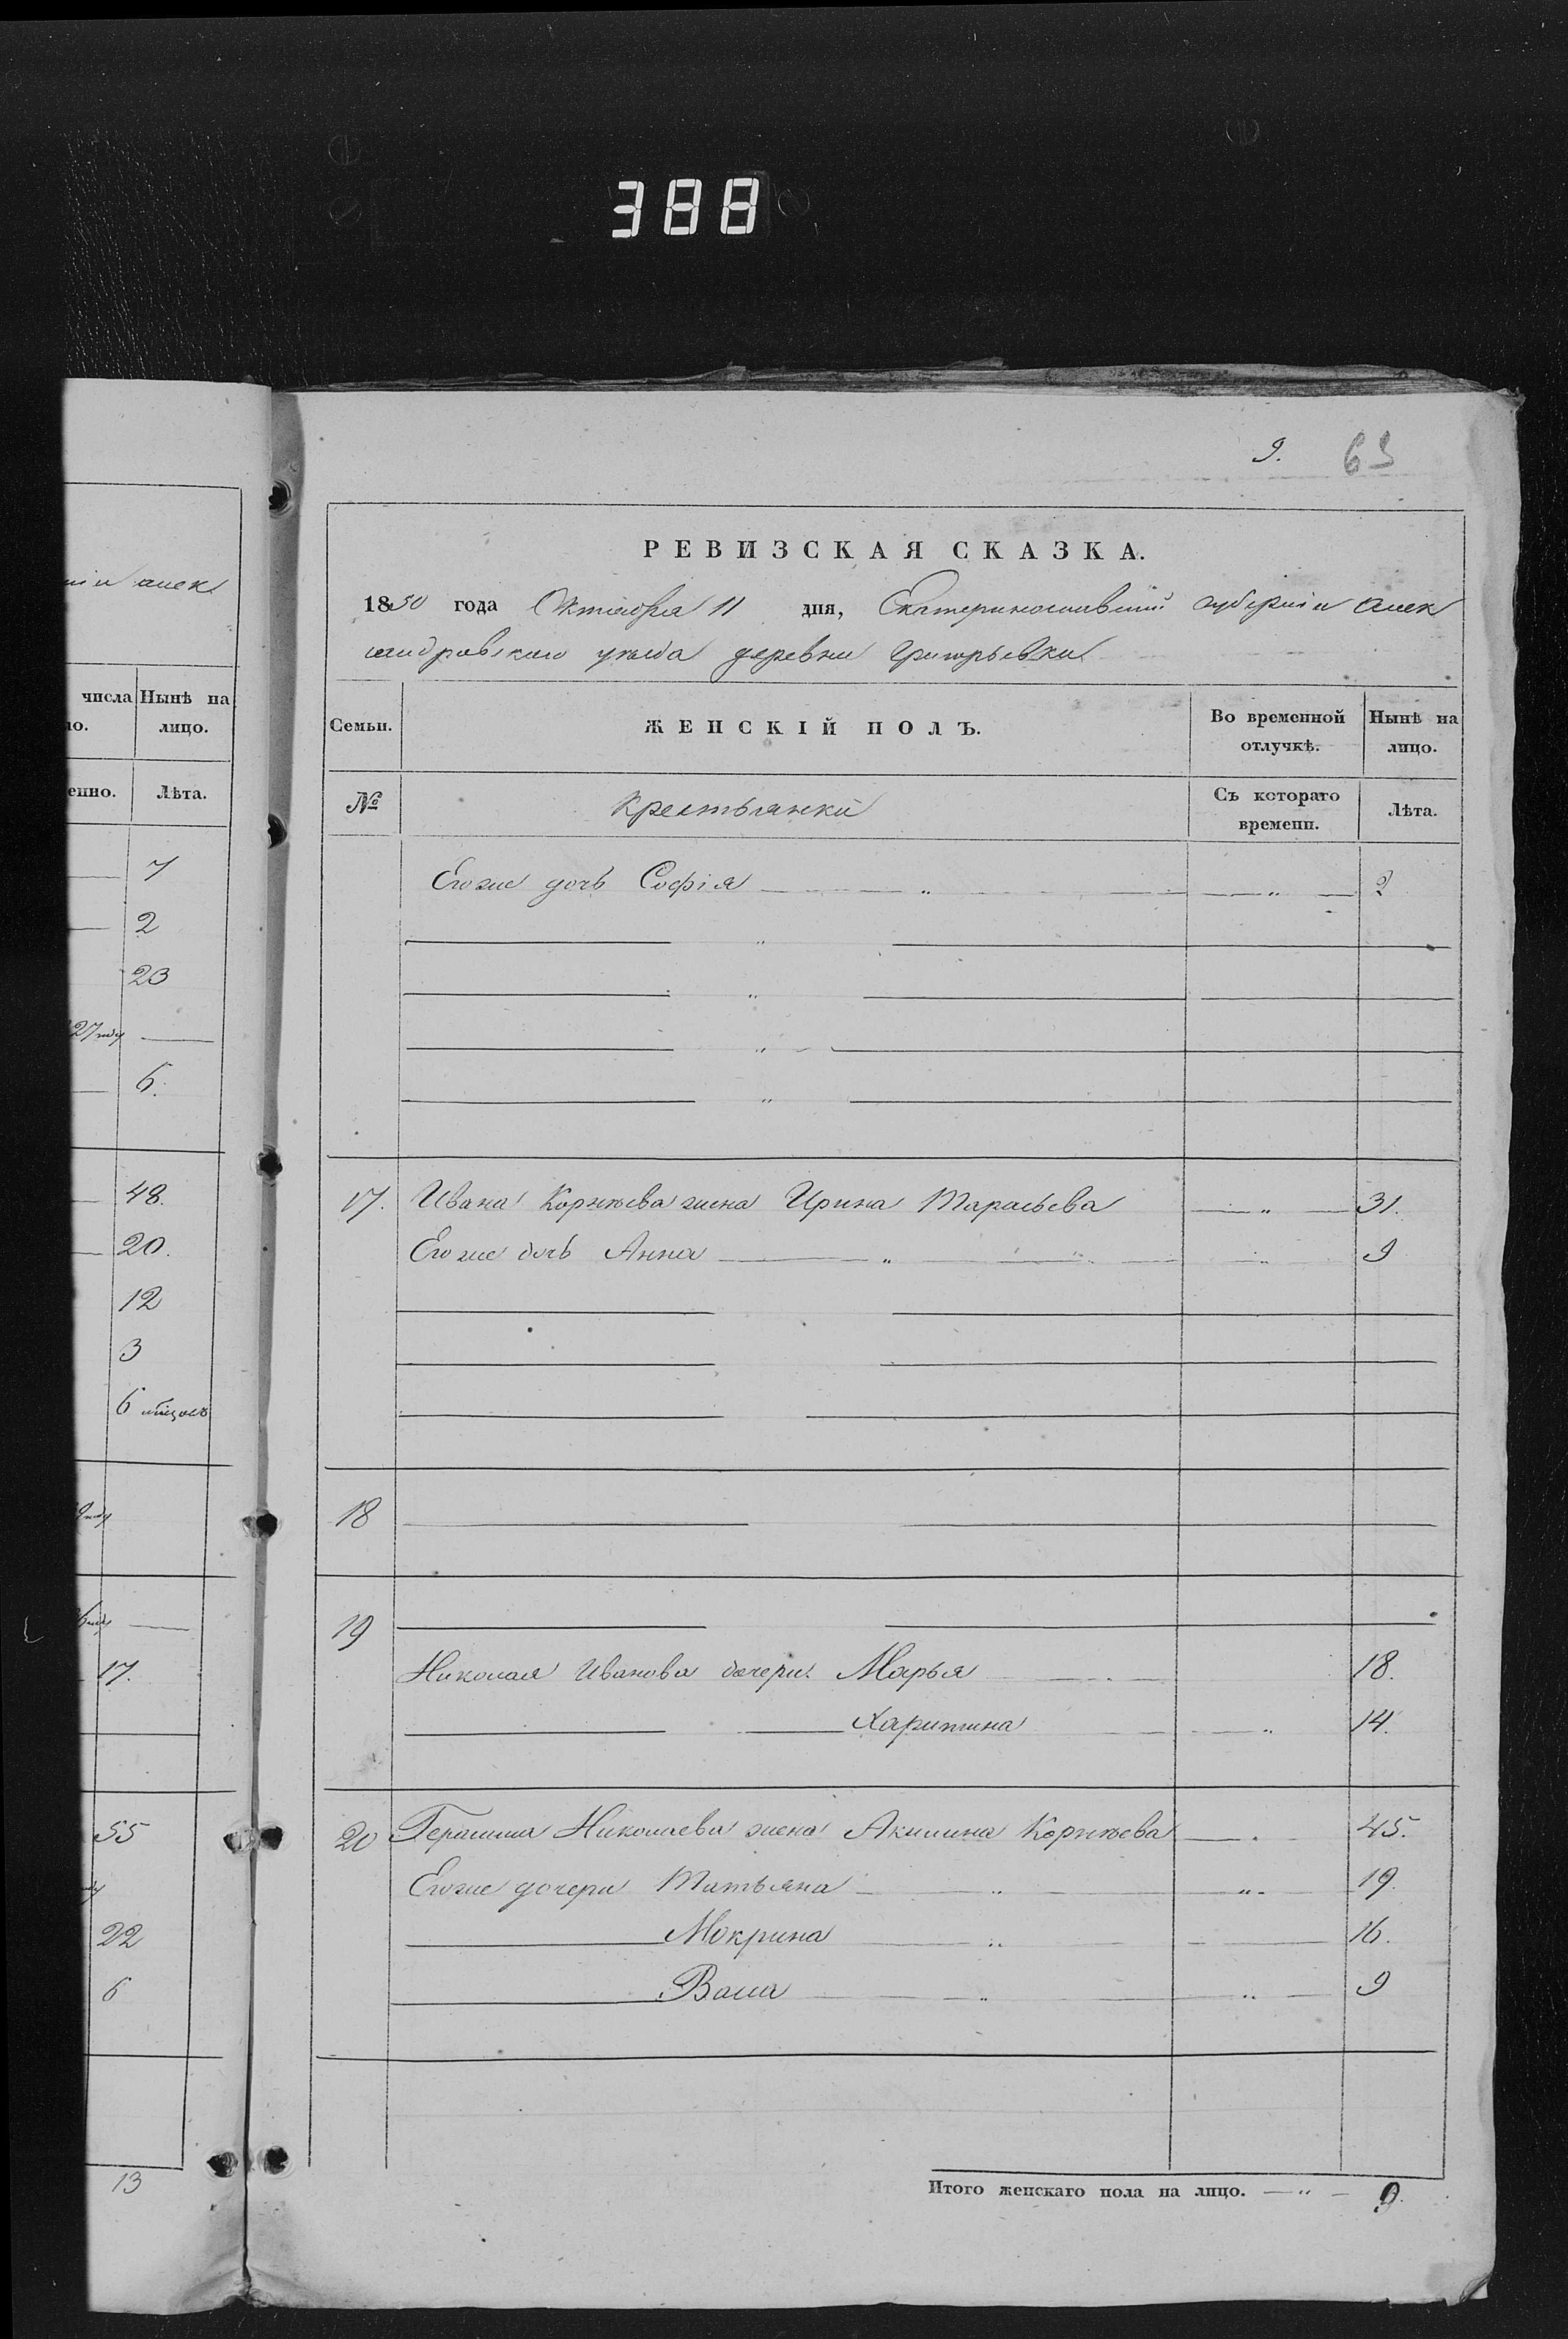 388
ніи алек
числа Нынѣ на
ло. лицо.
енно. Лѣта.
7
2
23
27 году
6.
48.
20.
12
3
6 мѣсяцовъ
17.
55
22
6
13
9. 69
РЕВИЗСКАЯ СКАЗКА.
1850 года Октября 11 дня, Екатеринославской губерніи Алек
сандровскаго уезда деревни Григорьевки
Семьи. ЖЕНСКІЙ ПОЛЪ. Во временной отлучкѣ. Нынѣ на лицо.
№ Крестьянки Съ котораго времени. Лѣта.
Егоже дочь Софія 2
17. Ивана Корнѣева жена Ирина Тарасьева 31.
Егоже дочь Анна 9
18
19
Николая Иванова дочери Марья 18.
Харитина 14.
20 Герасима Николаева жена Акилина Корнѣева 45.
Егоже дочери Татьяна 19.
Мокрина 16.
Васса 9
Итого женскаго пола на лицо. 9.